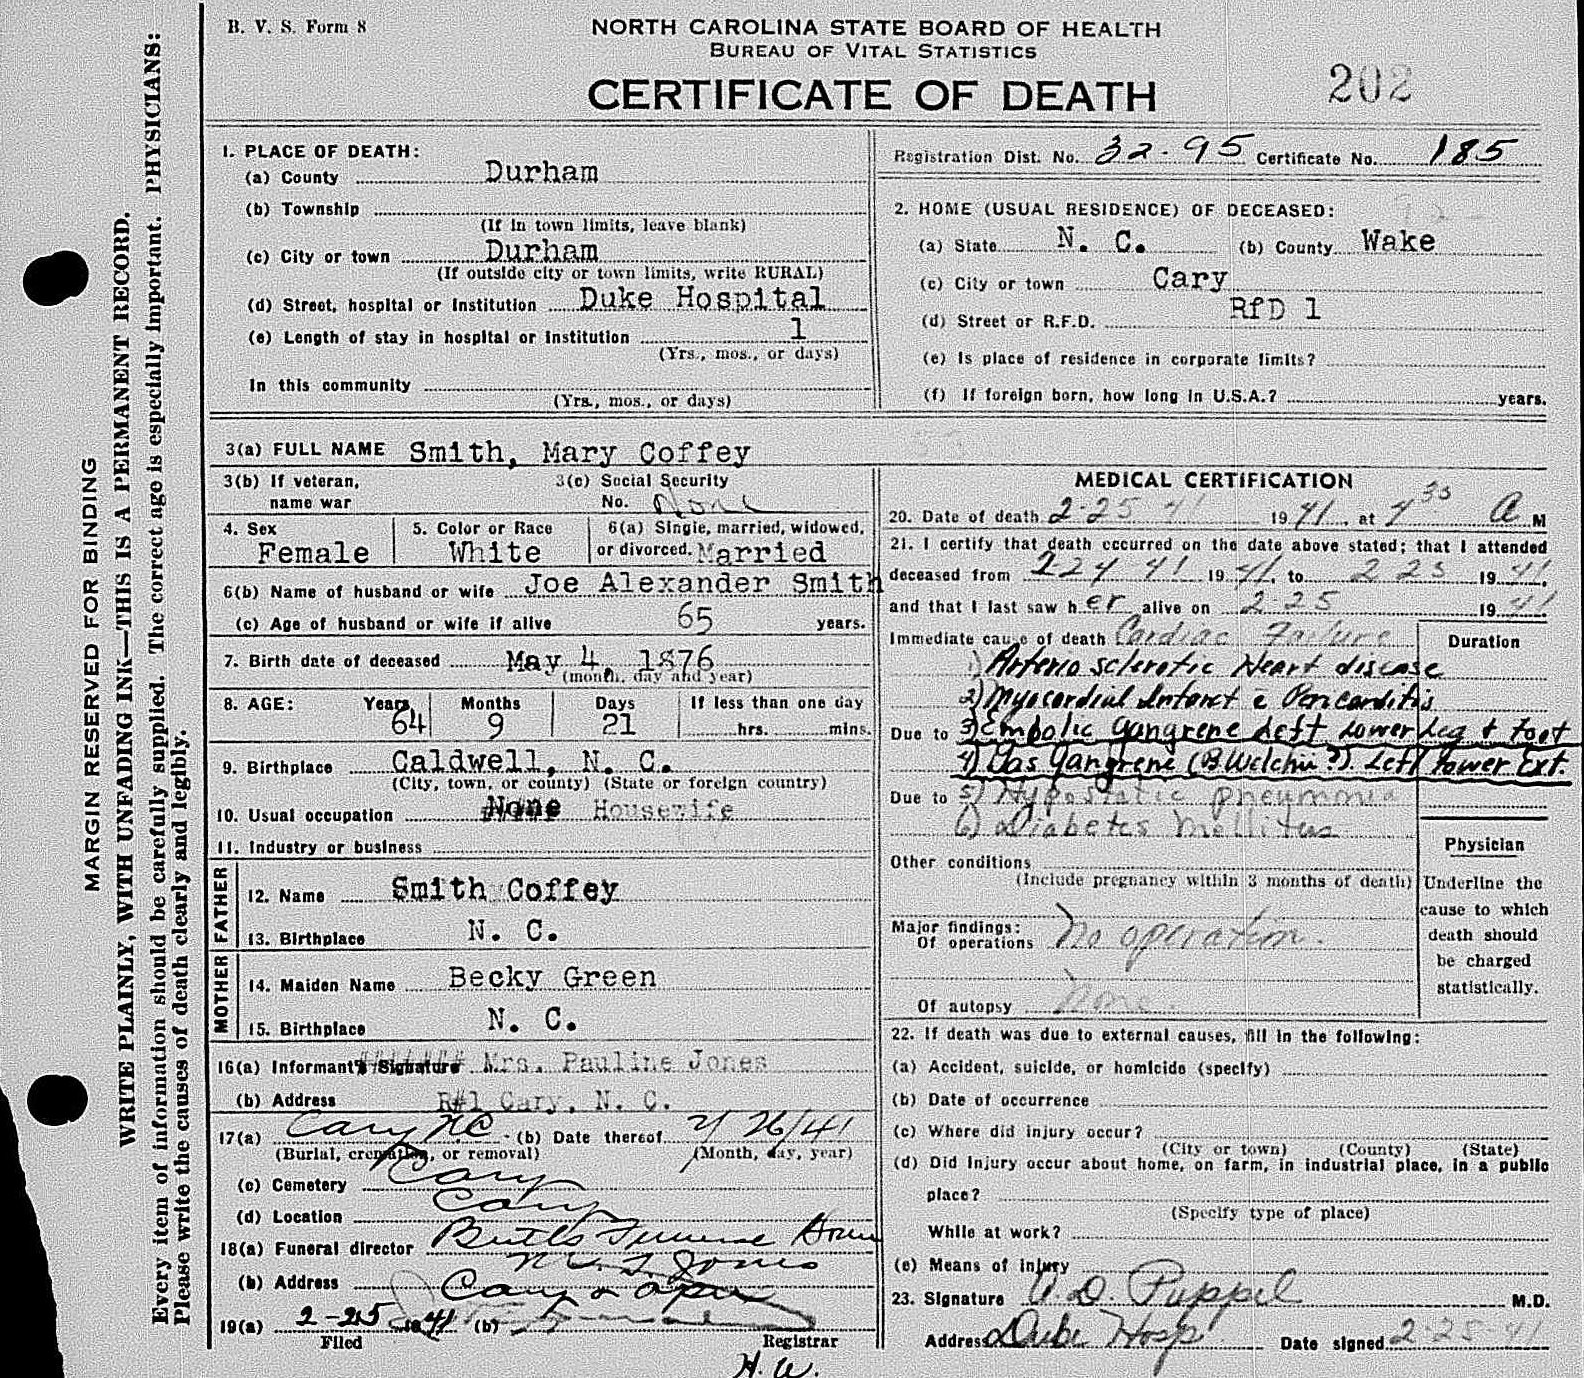 B. V. S. Form 8
NORTH CAROLINA STATE BOARD OF HEALTH
BUREAU OF VITAL STATISTICS
CERTIFICATE OF DEATH
202
MARGIN RESERVED FOR BINDING
WRITE PLAINLY, WITH UNFADING INK—THIS IS A PERMANENT RECORD.
Every item of information should be carefully supplied. The correct age is especially important. PHYSICIANS:
Please write the causes of death clearly and legibly.
1. PLACE OF DEATH:
(a) County Durham
(b) Township
(If in town limits, leave blank)
(c) City or town Durham
(If outside city or town limits, write RURAL)
(d) Street, hospital or Institution Duke Hospital
(e) Length of stay in hospital or Institution 1
(Yrs., mos., or days)
In this community
(Yrs., mos., or days)
Registration Dist. No. 32-95 Certificate No. 185
2. HOME (USUAL RESIDENCE) OF DECEASED:
(a) State N. C. (b) County Wake
(c) City or town Cary
(d) Street or R.F.D. RfD 1
(e) Is place of residence in corporate limits?
(f) If foreign born, how long in U.S.A.? years.
3(a) FULL NAME Smith, Mary Coffey
3(b) If veteran, name war
3(c) Social Security No. None
4. Sex Female
5. Color or Race White
6(a) Single, married, widowed, or divorced. Married
6(b) Name of husband or wife Joe Alexander Smith
(c) Age of husband or wife if alive 65 years.
7. Birth date of deceased May 4, 1876
(month, day and year)
8. AGE: Years 64 Months 9 Days 21 If less than one day hrs. mins.
9. Birthplace Caldwell, N. C.
(City, town, or county) (State or foreign country)
10. Usual occupation None Housewife
11. Industry or business
FATHER
12. Name Smith Coffey
13. Birthplace N. C.
MOTHER
14. Maiden Name Becky Green
15. Birthplace N. C.
16(a) Informant's Signature Mrs. Pauline Jones
(b) Address R#1 Cary, N. C.
17(a) Cary NC (b) Date thereof 2/26/41
(Burial, cremation, or removal) (Month, day, year)
(c) Cemetery Cary
(d) Location Cary
18(a) Funeral director Funeral Home
Jones
(b) Address Cary
19(a) 2-25 1941 (b)
Filed Registrar
H. W.
MEDICAL CERTIFICATION
20. Date of death 2-25 41 1941, at 4 35 A M
21. I certify that death occurred on the date above stated; that I attended
deceased from 2 24 41 1941, to 2 25 1941,
and that I last saw her alive on 2-25 1941
Immediate cause of death Cardiac Failure
Duration
1) Arterio sclerotic Heart disease
2) Myocardial Infarct c Pericarditis
Due to 3) Embolic gangrene Left Lower Leg + foot
4) Gas gangrene (B Welchii?). Left lower Ext.
Due to 5) Hypostatic pneumonia
6) Diabetes Mellitus
Other conditions
(Include pregnancy within 3 months of death)
Major findings:
Of operations No operation.
Of autopsy None
Physician
Underline the
cause to which
death should
be charged
statistically.
22. If death was due to external causes, fill in the following:
(a) Accident, suicide, or homicide (specify)
(b) Date of occurrence
(c) Where did injury occur?
(City or town) (County) (State)
(d) Did Injury occur about home, on farm, in industrial place, in a public
place?
(Specify type of place)
While at work?
(e) Means of injury
23. Signature M.D.
Address Duke Hosp Date signed 2-25-41